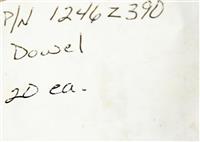 P/N 1246Z390
Dowel
20 ea.